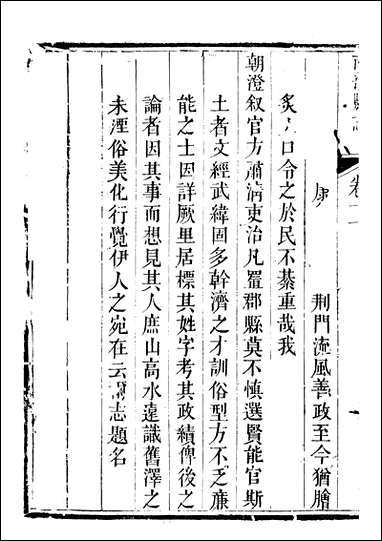 卷
荆門流風善政至今猶膾
炙口令之於民不綦重哉我
朝澄叙官方肅清吏治凡置郡縣莫不慎選賢能官斯
土者文經武緯固多幹濟之才訓俗型方不乏亷
能之士因詳厥里居標其姓字考其政績俾後之
論者因其事而想見其人庶山高水遠識舊澤之
未湮俗美化行覽伊人之宛在云爾志題名